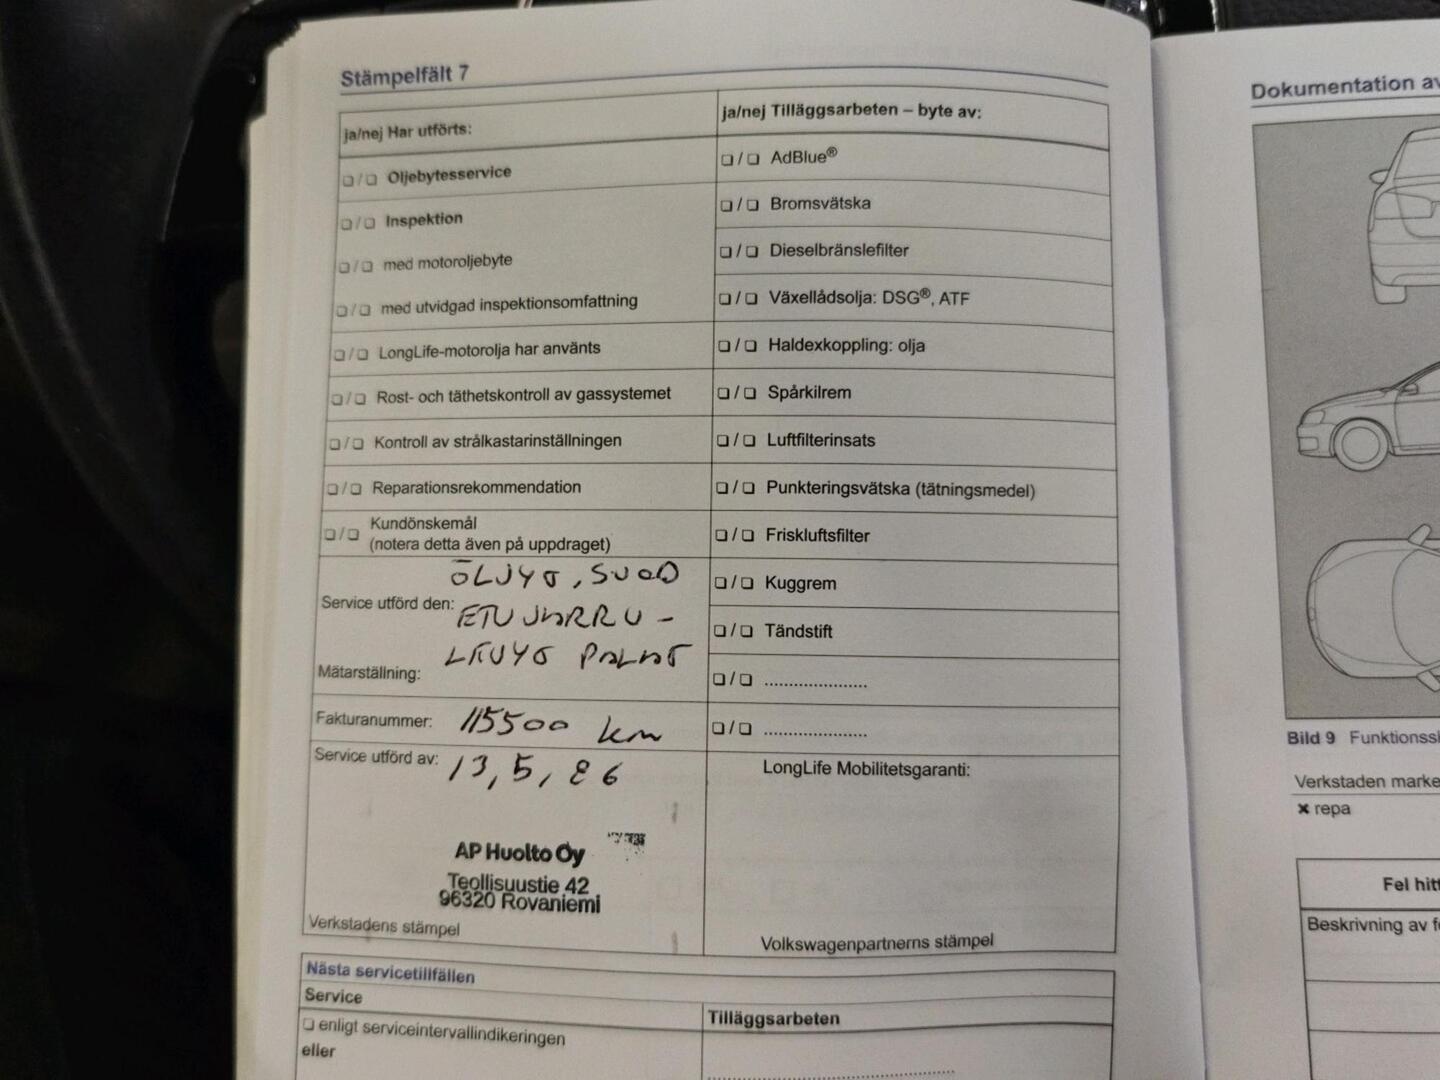 Stämpelfält 7
ja/nej Har utförts:
❏ / ❏ Oljebytesservice
❏ / ❏ Inspektion
❏ / ❏ med motoroljebyte
❏ / ❏ med utvidgad inspektionsomfattning
❏ / ❏ LongLife-motorolja har använts
❏ / ❏ Rost- och täthetskontroll av gassystemet
❏ / ❏ Kontroll av strålkastarinställningen
❏ / ❏ Reparationsrekommendation
❏ / ❏ Kundönskemål
(notera detta även på uppdraget)
ÖLJYT, SUOD
Service utförd den: ETUJARRU-
LEVYT PALAT
Mätarställning:
Fakturanummer: 115500 km
Service utförd av: 13,5,
AP Huolto Oy
Teollisuustie 42
96320 Rovaniemi
Verkstadens stämpel
ja/nej Tilläggsarbeten – byte av:
❏ / ❏ AdBlue®
❏ / ❏ Bromsvätska
❏ / ❏ Dieselbränslefilter
❏ / ❏ Växellådsolja: DSG®, ATF
❏ / ❏ Haldexkoppling: olja
❏ / ❏ Spårkilrem
❏ / ❏ Luftfilterinsats
❏ / ❏ Punkteringsvätska (tätningsmedel)
❏ / ❏ Friskluftsfilter
❏ / ❏ Kuggrem
❏ / ❏ Tändstift
❏ / ❏ .....................
❏ / ❏ .....................
LongLife Mobilitetsgaranti:
Volkswagenpartnerns stämpel
Nästa servicetillfällen
Service
❏ enligt serviceintervallindikeringen
eller
Tilläggsarbeten
Dokumentation av
Bild 9 Funktionssk
Verkstaden marke
✖ repa
Fel hitt
Beskrivning av fe